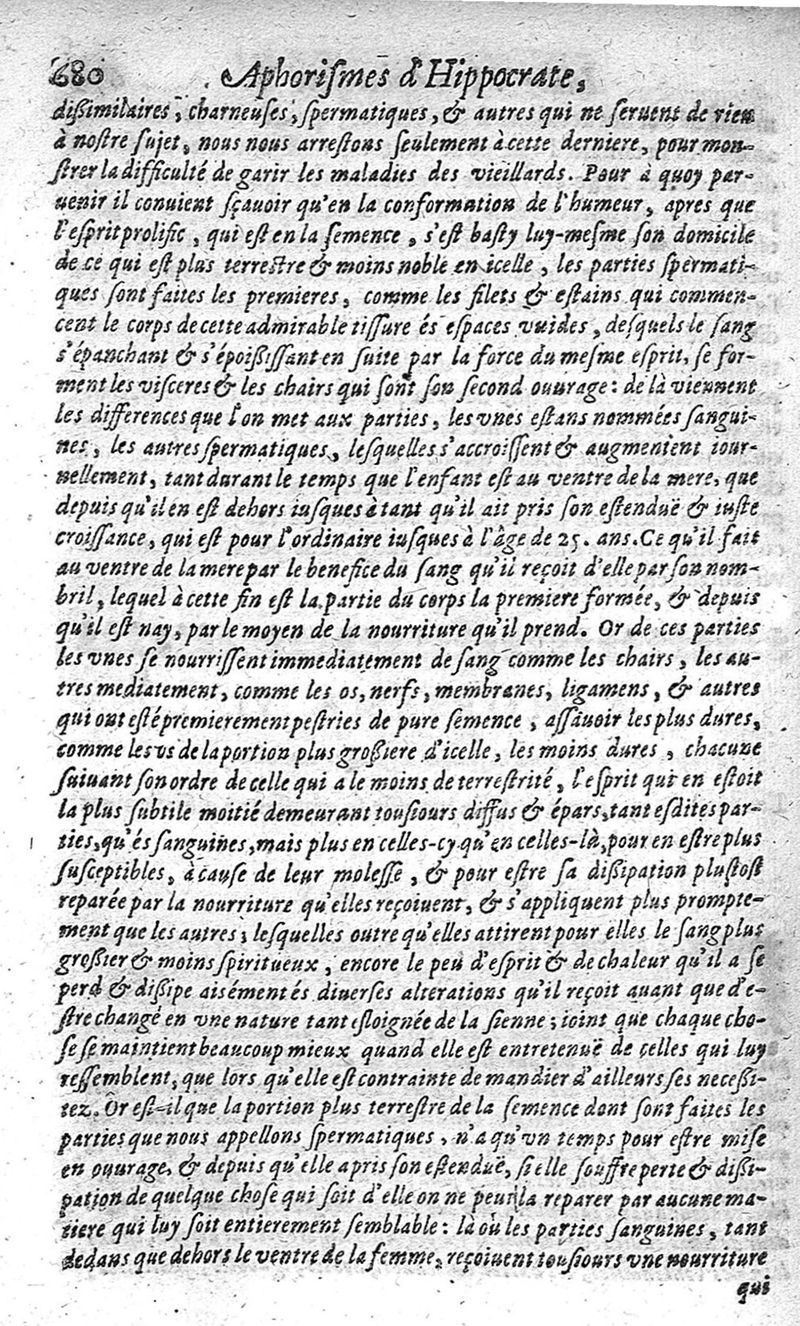 680 Aphoriſmes d'Hippocrate,
dißimilaires, charneuſes, ſpermatiques, & autres qui ne ſeruent de rien
à noſtre ſujet, nous nous arreſtons ſeulement à cette derniere, pour mon-
ſtrer la difficulté de garir les maladies des vieillards. Pour à quoy par-
uenir il conuient ſçauoir qu'en la conformation de l'humeur, apres que
l'eſprit prolific, qui eſt en la ſemence, s'eſt baſty luy-meſme ſon domicile
de ce qui eſt plus terreſtre & moins noble en icelle, les parties ſpermati-
ques ſont faites les premieres, comme les filets & eſtains qui commen-
cent le corps de cette admirable tiſſure és eſpaces vuides, deſquels le ſang
s'épanchant & s'époißiſſant en ſuite par la force du meſme eſprit, ſe for-
ment les viſceres & les chairs qui ſont ſon ſecond ouurage: de là viennent
les differences que l'on met aux parties, les vnes eſtans nommées ſangui-
nes, les autres ſpermatiques, leſquelles s'accroiſſent & augmentent iour-
nellement, tant durant le temps que l'enfant eſt au ventre de la mere, que
depuis qu'il en eſt dehors iuſques à tant qu'il ait pris ſon eſtenduë & iuſte
croiſſance, qui eſt pour l'ordinaire iuſques à l'âge de 25. ans. Ce qu'il fait
au ventre de la mere par le benefice du ſang qu'il reçoit d'elle par ſon nom-
bril, lequel à cette fin eſt la partie du corps la premiere formée, & depuis
qu'il eſt nay, par le moyen de la nourriture qu'il prend. Or de ces parties
les vnes ſe nourriſſent immediatement de ſang comme les chairs, les au-
tres mediatement, comme les os, nerfs, membranes, ligamens, & autres
qui ont eſté premierement peſtries de pure ſemence, aſſauoir les plus dures,
comme les os de la portion plus großiere d'icelle, les moins dures, chacune
ſuiuant ſon ordre de celle qui a le moins de terreſtrité, l'eſprit qui en eſtoit
la plus ſubtile moitié demeurant touſiours diffus & épars, tant eſdites par-
ties, qu'és ſanguines, mais plus en celles-cy qu'en celles-là, pour en eſtre plus
ſuſceptibles, à cauſe de leur moleſſe, & pour eſtre ſa dißipation pluſtoſt
reparée par la nourriture qu'elles reçoiuent, & s'appliquent plus prompte-
ment que les autres; leſquelles outre qu'elles attirent pour elles le ſang plus
großier & moins ſpiritueux, encore le peu d'eſprit & de chaleur qu'il a ſe
perd & dißipe aisément és diuerſes alterations qu'il reçoit auant que d'e-
ſtre changé en vne nature tant eſloignée de la ſienne; ioint que chaque cho-
ſe ſe maintient beaucoup mieux quand elle eſt entretenuë de celles qui luy
reſſemblent, que lors qu'elle eſt contrainte de mandier d'ailleurs ſes neceßi-
tez. Or eſt-il que la portion plus terreſtre de la ſemence dont ſont faites les
parties que nous appellons ſpermatiques, n'a qu'vn temps pour eſtre miſe
en ouurage, & depuis qu'elle a pris ſon eſtenduë, ſi elle ſouffre perte & dißi-
pation de quelque choſe qui ſoit d'elle on ne peut la reparer par aucune ma-
tiere qui luy ſoit entierement ſemblable: là où les parties ſanguines, tant
dedans que dehors le ventre de la femme, reçoiuent touſiours vne nourriture
qui